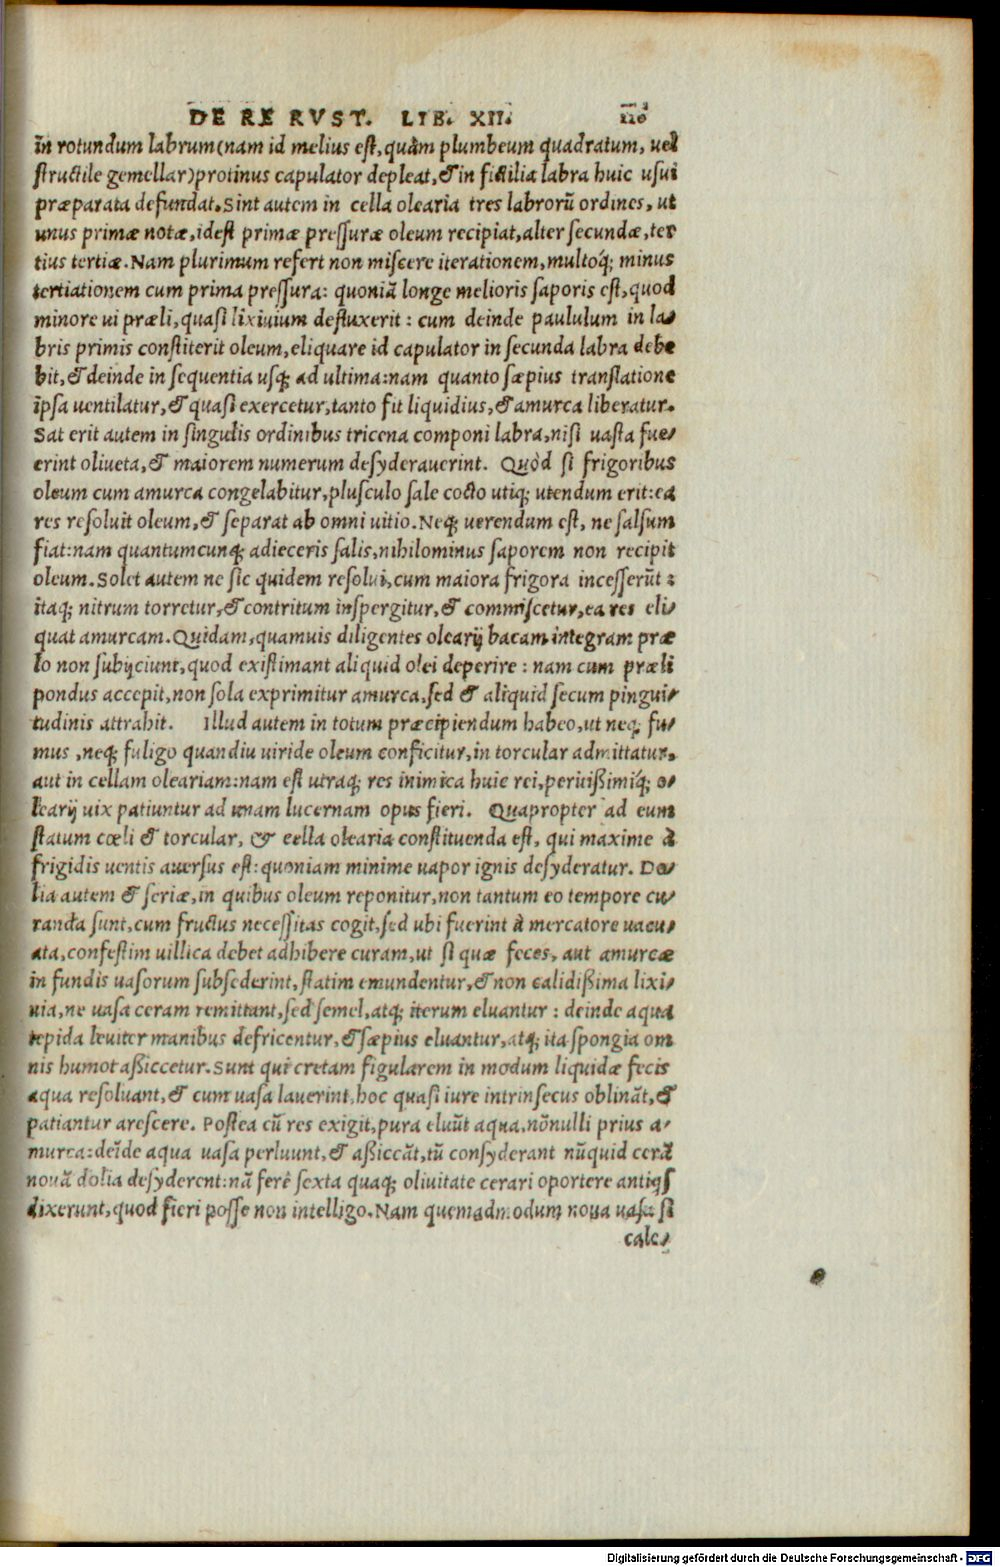 DE RE RVST. LIB. XII.
in rotundum labrum(nam id melius est, quàm plumbeum quadratum, uel
structile gemellar)protinus capulator depleat, & in fictilia labra huic usui
præparata defundat. Sint autem in cella olearia tres labrorũ ordines, ut
unus primæ notæ, idest primæ pressuræ oleum recipiat, alter secundæ, ter
tius tertiæ. Nam plurimum refert non miscere iterationem, multoq́; minus
tertiationem cum prima pressura: quoniã longe melioris saporis est, quod
minore ui præli, quasi lixiuium defluxerit: cum deinde paululum in la⸗
bris primis constiterit oleum, eliquare id capulator in secunda labra debe
bit, & deinde in sequentia usq; ad ultima: nam quanto sæpius translatione
ipsa uentilatur, & quasi exercetur, tanto fit liquidius, & amurca liberatur.
Sat erit autem in singulis ordinibus tricena componi labra, nisi uasta fue⸗
erint oliueta, & maiorem numerum desyderauerint. Quòd si frigoribus
oleum cum amurca congelabitur, plusculo sale cocto utiq; utendum erit: ea
res resoluit oleum, & separat ab omni uitio. Neq; uerendum est, ne salsum
fiat: nam quantumcunq; adieceris salis, nihilominus saporem non recipit
oleum. Solet autem ne sic quidem resolui, cum maiora frigora incesserũt:
itaq; nitrum torretur, & contritum inspergitur, & commiscetur, ea res eli⸗
quat amurcam. Quidam, quamuis diligentes olearij bacam integram præ
lo non subijciunt, quod existimant aliquid olei deperire: nam cum præli
pondus accepit, non sola exprimitur amurca, sed & aliquid secum pingui⸗
tudinis attrahit. Illud autem in totum præcipiendum habeo, ut neq; fu⸗
mus, neq; fuligo quandiu uiride oleum conficitur, in torcular admittatur,
aut in cellam oleariam: nam est utraq; res inimica huic rei, peritißimiq́; o⸗
learij uix patiuntur ad unam lucernam opus fieri. Quapropter ad eum
statum cœli & torcular, & cella olearia constituenda est, qui maxime à
frigidis uentis auersus est: quoniam minime uapor ignis desyderatur. Do⸗
lia autem & seriæ, in quibus oleum reponitur, non tantum eo tempore cu⸗
randa sunt, cum fructus necessitas cogit, sed ubi fuerint à mercatore uacu⸗
ata, confestim uillica debet adhibere curam, ut si quæ feces, aut amurcæ
in fundis uasorum subsederint, statim emundentur, & non calidißima lixi⸗
uia, ne uasa ceram remittant, sed semel, atq; iterum eluantur: deinde aqua
tepida leuiter manibus defricentur, & sæpius eluantur, atq; ita spongia om
nis humor aßiccetur. Sunt qui cretam figularem in modum liquidæ fecis
aqua resoluant, & cum uasa lauerint, hoc quasi iure intrinsecus oblinãt, &
patiantur arescere. Postea cũ res exigit, pura eluũt aqua, nõnulli prius a⸗
murca: deĩde aqua uasa perluunt, & aßiccãt, tũ consyderant nũquid cerã
nouã dolia desyderent: nã ferè sexta quaq; oliuitate cerari oportere antiqs
dixerunt, quod fieri posse non intelligo. Nam quemadmodum noua uasa si
cale⸗
Digitalisierung gefördert durch die Deutsche Forschungsgemeinschaft - DFG